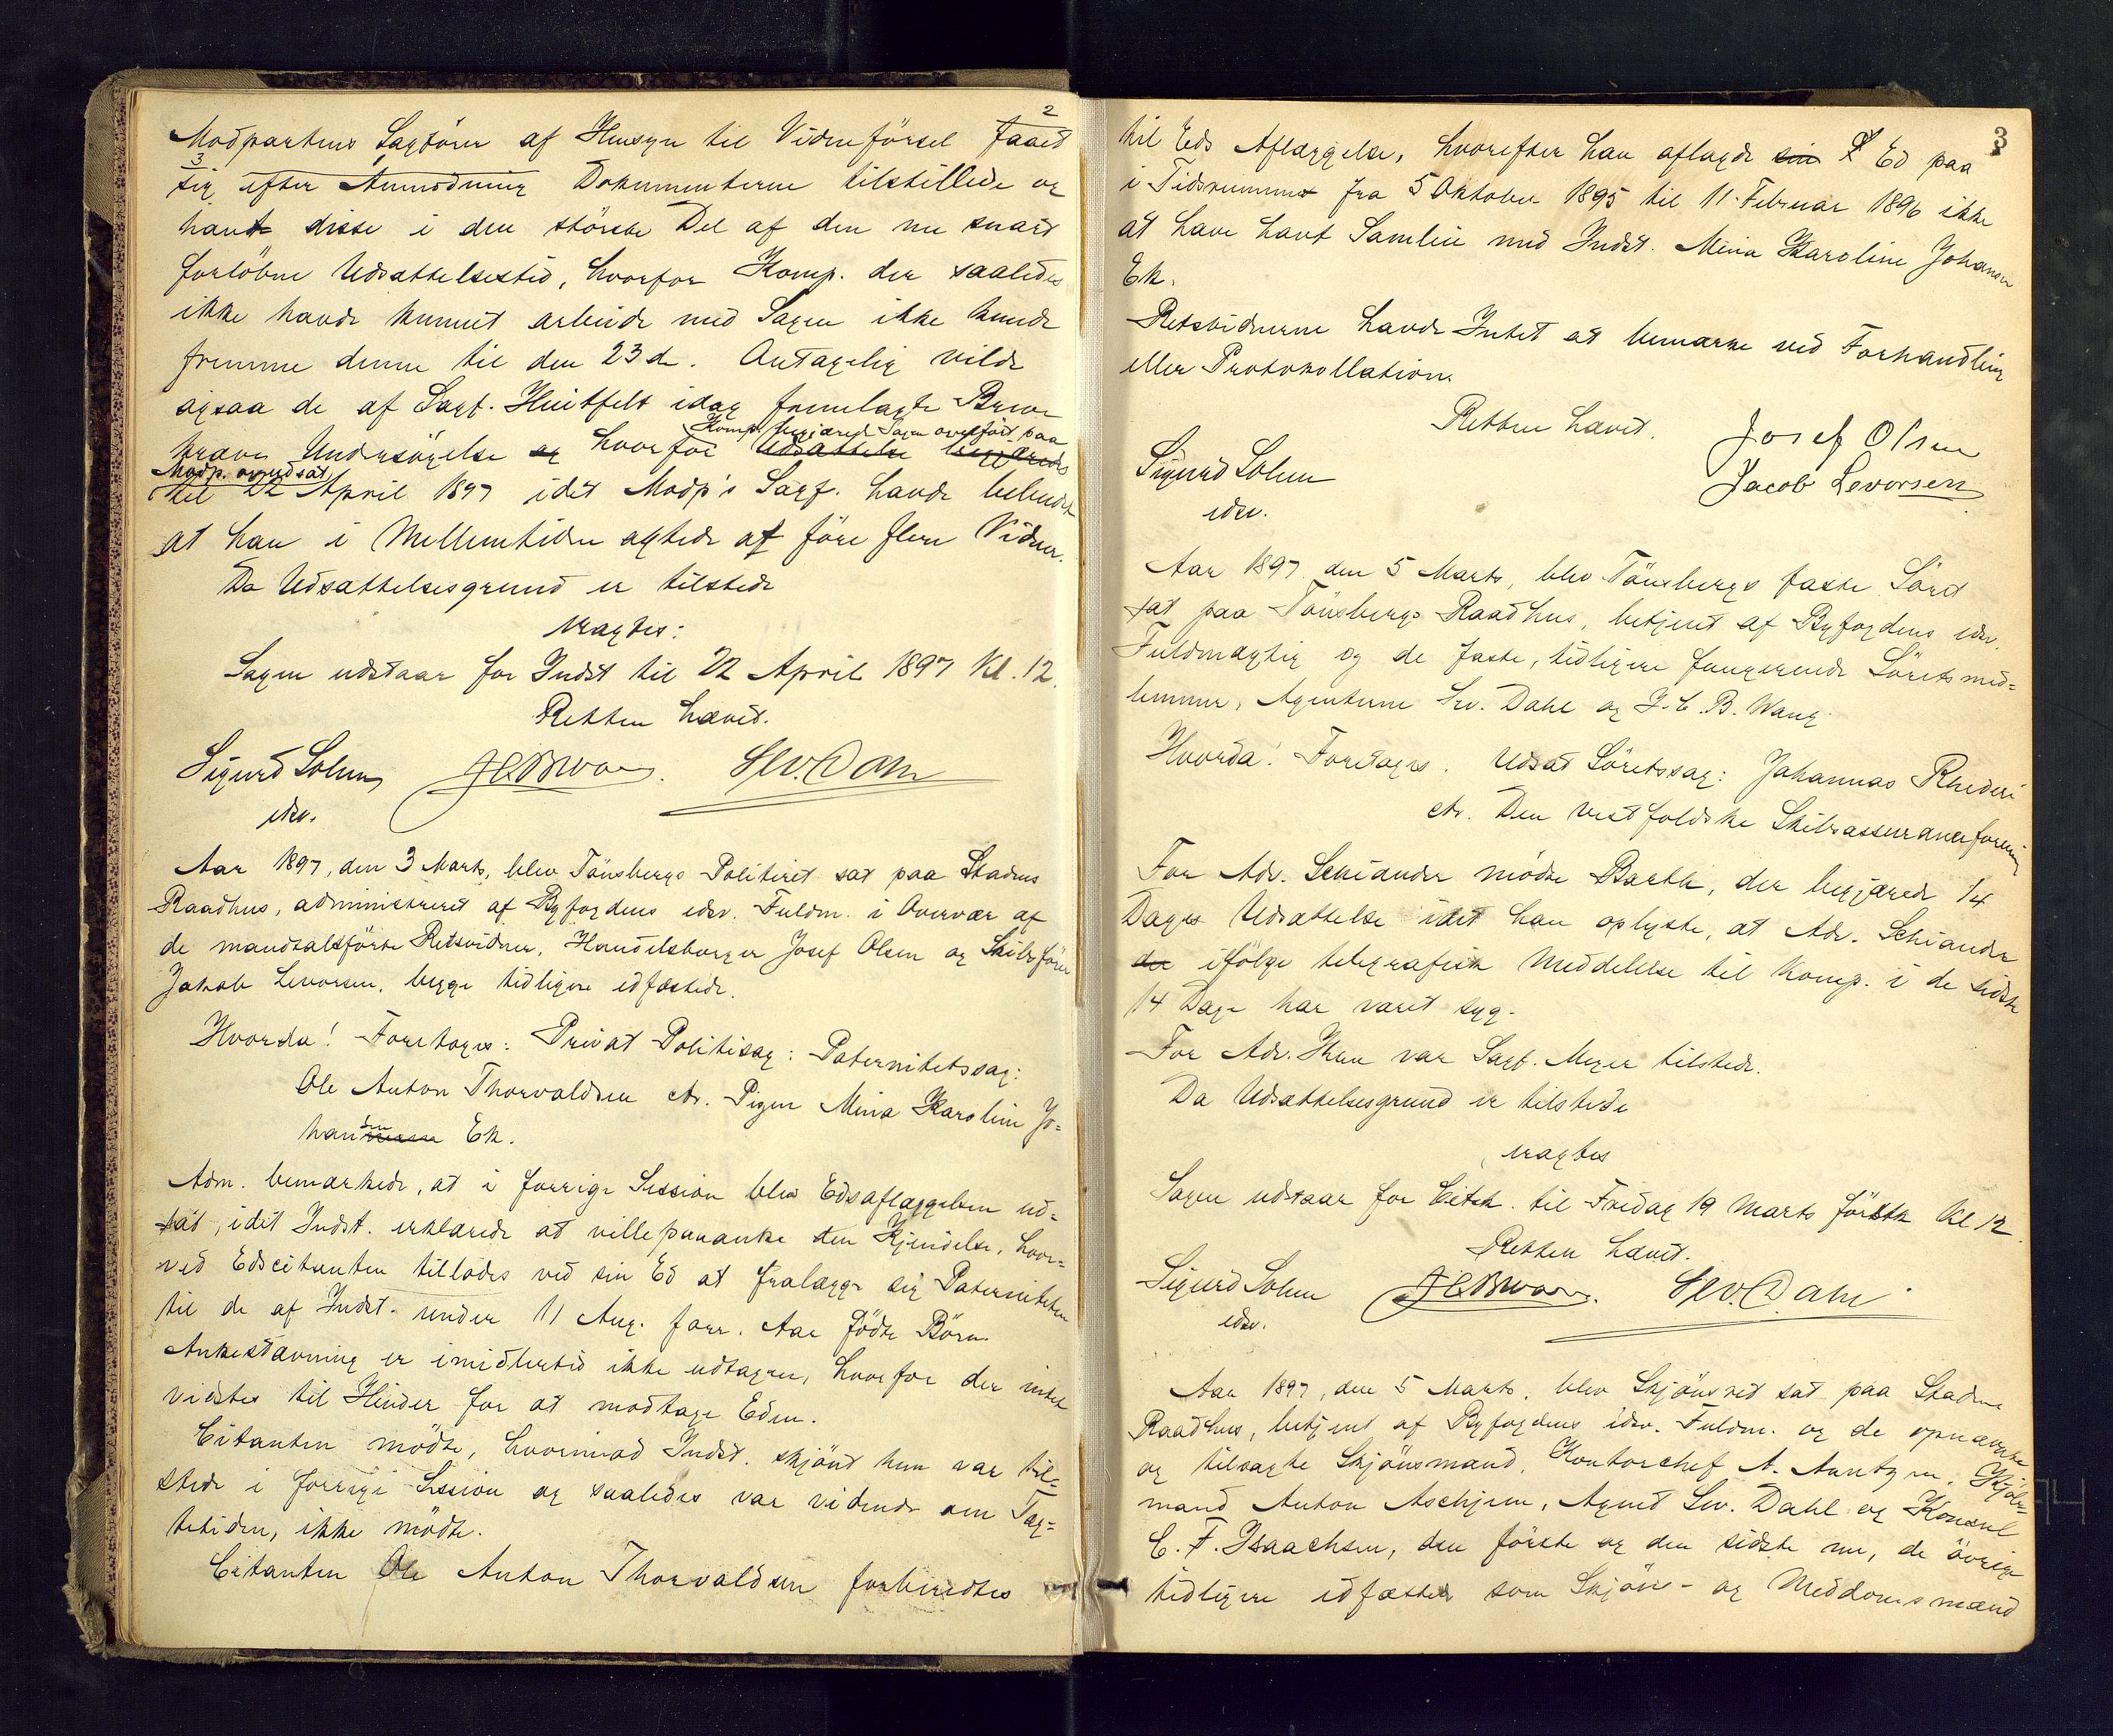 2
Modpartens Sagfører af Hensyn til Vidneførsel faaet
3
sig efter Anmodning Dokumenterne tilstillede og
havt disse i den største Del af den nu snart
forløbne Udsættelsestid, hvorfor Komp. der saaledes
ikke havde kunnet arbeide med Sagen ikke kunde
fremme denne til den 23d. Antagelig vilde
ogsaa de af Sagf. Huitfelt idag fremlagte Breve
Komp. begjæred Sagen overført paa
kræve Undersøgelse og hvorfor Udsættelse begjæredes
Modp. og udsat
til 22 April 1897 idet Modp's Sagf. havde bebudet
at han i Mellemtiden agtede at føre flere Vidner.
Da Udsættelsesgrund er tilstede
eragtes:
Sagen udstaar for Indst til 22 April 1897 Kl. 12.
Retten hævet.
Sigurd Solum J C B Wang. Sev. Dahl
edsv.
Aar 1897, den 3 Marts, blev Tönsbergs Politiret sat paa Stadens
Raadhus, administreret af Byfogdens edsv. Fuldm. i Overvær af
de mandtalsførte Retsvidner, Handelsborger Josef Olsen og Skibsfører
Jakob Levorsen, begge tidligere edfæstede.
Hvorda! Foretoges: Privat Politisag: Paternitetssag:
Ole Anton Thorvaldsen ctr. Pigen Mina Karoline Jo-
hansen Ek.
Adm. bemærkede, at i forrige Session blev Edsaflæggelsen ud-
sat, idet Indst. erklærede at ville paaanke den Kjendelse, hvor-
ved Edscitanten tillodes ved sin Ed at fralægge sig Paterniteten
til de af Indst. under 11 Aug. forr. Aar fødte Børn.
Ankestævning er imidlertid ikke udtagen, hvorfor der intet
vidstes til Hinder for at modtage Eden.
Citanten mødte, hvorimod Indst. skjønt hun var til-
stede i forrige Session og saaledes var vidende om Tæg-
tetiden, ikke mødte.
Citanten Ole Anton Thorvaldsen forberedtes
3
til Eds Aflæggelse, hvorefter han aflagde sin Ed paa
i Tidsrummet fra 5 Oktober 1895 til 11. Februar 1896 ikke
at have havt Samleie med Indst. Mina Karoline Johansen
Ek.
Retsvidnerne havde Intet at bemærke ved Forhandling
eller Protokollation.
Retten hævet.
Josef Olsen
Sigurd Solum Jacob Levorsen
edsv.
Aar 1897 den 5 Marts, blev Tönsbergs faste Søret
sat paa Tönsbergs Raadhus, betjent af Byfogdens edsv.
Fuldmægtig og de faste, tidligere fungerende Sørets med-
lemmer, Agenterne Sev. Dahl og J. C. B. Wang.
Hvorda! Foretoges. Udsat Søretssag: Johannas Rhederi
ctr. Den vestfoldske Skibsassuranceforening
For Adv. Schiander mødte Barth, der begjærede 14
Dages Udsættelse idet han oplyste, at Adv. Schiander
der ifølge telegrafisk Meddelelse til Komp. i de sidste
14 Dage har været syg.
For Adv. Kreu var Sagf. Meyer tilstede.
Da Udsættelsesgrund er tilstede
eragtes
Sagen udstaar for Citch. til Fredag 19 Marts førstk Kl 12.
Retten hævet.
Sigurd Solum J C B Wang. Sev. Dahl
edsv.
Aar 1897, den 5 Marts, blev Skjønsret sat paa Stadens
Raadhus, betjent af Byfogdens edsv. Fuldm. og de opnævnte
og tilsagte Skjønsmænd, Kontorchef A.
mand Anton Aschjem, Agent Sev. Dahl og Konsul
C. F. Isaachsen, den første og den sidste nu, de øvrige
tidligere edfæstede som Skjøns- og Meddomsmænd